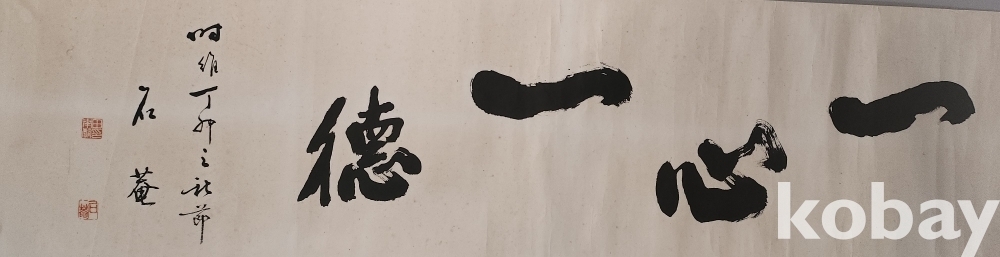 一心一德
時維丁卯之節
石菴
kobay